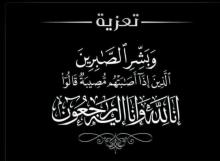 تعزية
وَبَشِّرِ الصَّابِرِينَ
الَّذِينَ إِذَا أَصَابَتْهُم مُّصِيبَةٌ قَالُوا
إِنَّا لِلَّهِ وَإِنَّا إِلَيْهِ رَاجِعُونَ